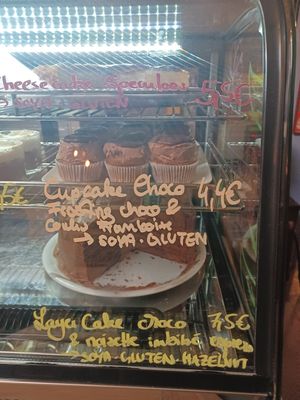 Cheesecake Speculoos 5,5€
→ SOYA - GLUTEN
Cupcake Choco 4,4€
Frosting choco &
Coulis Framboise
→ SOYA - GLUTEN
5€
Layer Cake choco 7,5€
& noisette imbibé
→ SOYA - GLUTEN - HAZELNUT